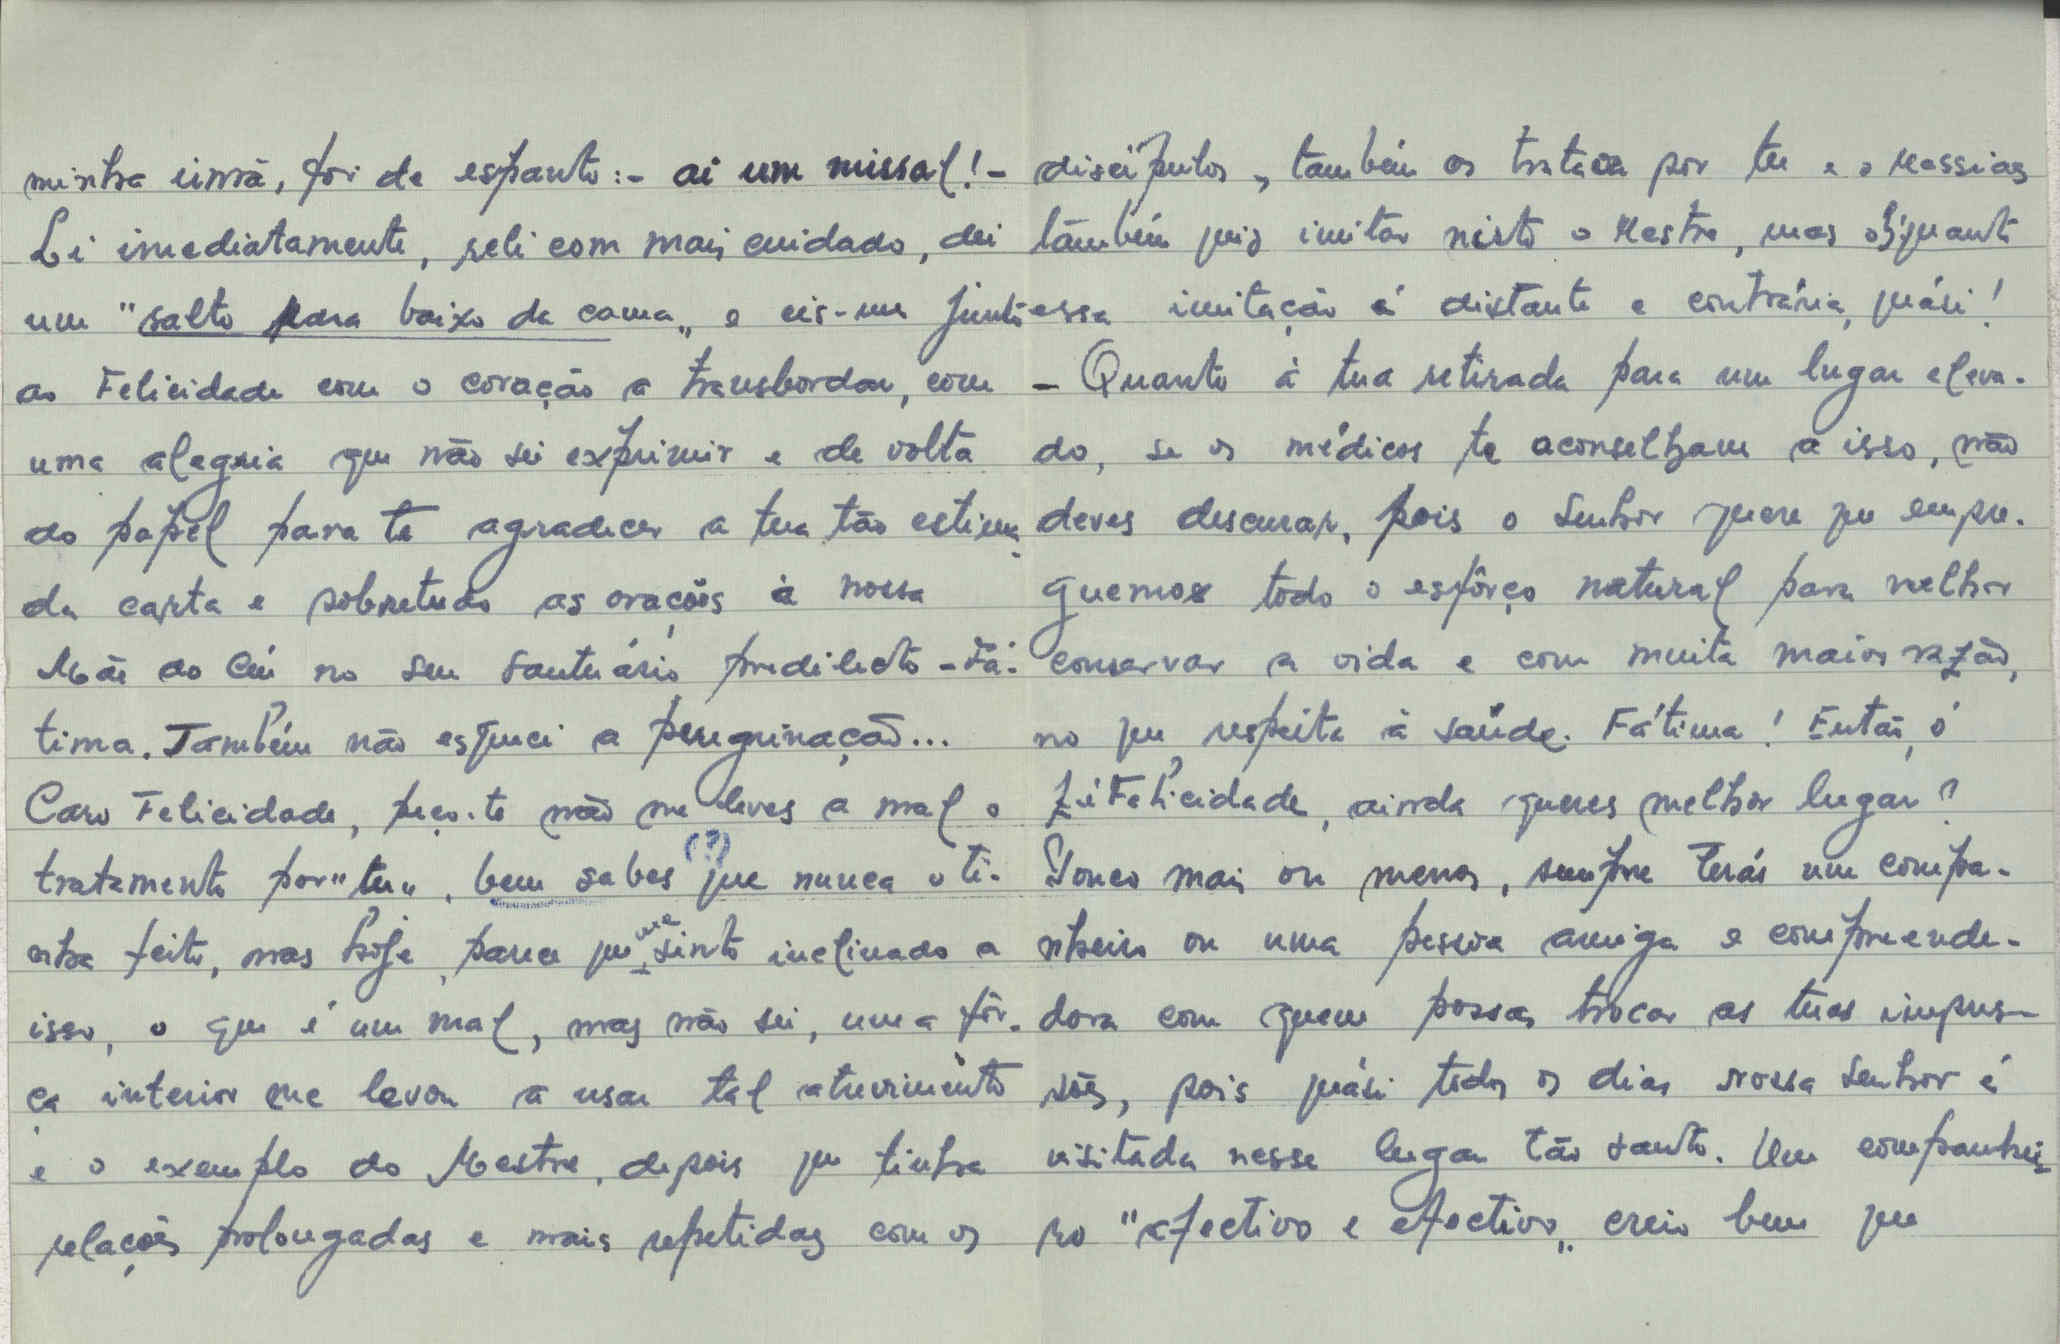 minha irmã, foi de espanto:- ai um missal!-
Li imediatamente, reli com mais cuidado, dei
um "salto para baixo da cama„ e eis-me junto
ao Felicidade com o coração a transbordar, com
uma alegria que não sei exprimir e de volta
do papel para te agradecer a tua tão estima-
da carta e sobretudo as orações à nossa
Mãe do Céu no seu santuário predilecto - Fá-
tima. Também não esqueci a peregrinação...
Caro Felicidade, peço-te não me leves a mal o
tratamento por "tu„, bem sabes (?) que nunca o ti-
nha feito, mas hoje, parece que me sinto inclinado a
isso, o que é um mal, mas não sei, uma fôr-
ça interior me levou a usar tal atrevimento
e o exemplo do Mestre, depois que tinha
relações prolongadas e mais repetidas com os
discípulos, também os tratava por tu e o Messias
também quis imitar nisto o Mestre, mas o quanto
essa imitação é distante e contrária, quási!
- Quanto à tua retirada para um lugar eleva-
do, se os médicos te aconselham a isso, não
deves descurar, pois o Senhor quere que empre-
guemos todo o esfôrço natural para melhor
conservar a vida e com muita maior razão,
no que respeita à saúde. Fátima! Então, ó
Zé Felicidade, ainda queres melhor lugar?
Pouco mais ou menos, sempre terás um compa-
nheiro ou uma pessoa amiga e compreende-
dora com quem possas trocar as tuas impres-
sões, pois quási todos os dias nossa Senhora é
visitada nesse lugar tão santo. Um companhei-
ro "afectivo e efectivo„ creio bem que